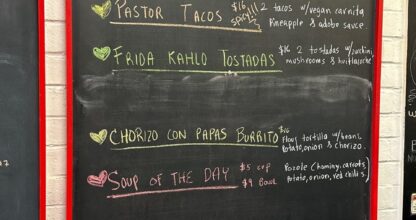 PASTOR TACOS $16 2 tacos w/vegan carnita
spicy!! Pineapple & adobo sauce
FRIDA KAHLO TOSTADAS $16 2 tostadas w/zucchini,
mushrooms & huitlacoche
CHORIZO CON PAPAS BURRITO $16
Flour tortilla w/beans,
Potato, onion & chorizo.
SOUP OF THE DAY $5 cup Pozole (hominy, carrots,
$9 Bowl Potato, onion, red chilis.)